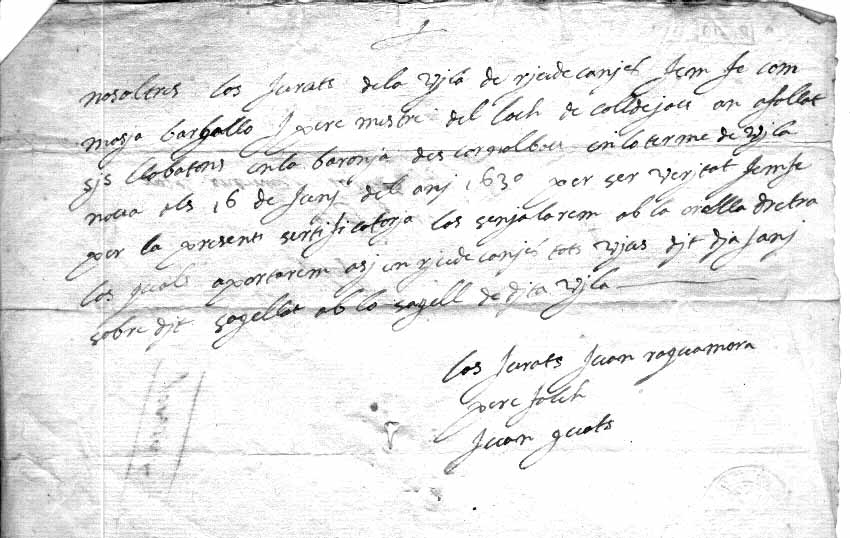 nosoltres los Jurats dela vjla de rjudecanjes fem fe com
masja bargallo J pere mestre del loch de colldejou an afollat
sjs llobatons enla baronja des cornalbou enlo terme de vjla
nova als 16 de Junj del anj 1630 per ser veritat femfe
per la present sertificatorja los senjalarem ab la orella dretra
los quals aportarem asj en rjudecanjes tots vjus djt dja Janj
sobre djt sagellat ab lo sagell de djta vjla
los Jurats Juan roquamora
pere folch
Juan